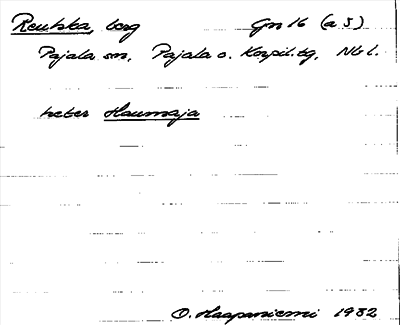 Reutska, berg Gm 16 (a 5)
Pajala sn, Pajala o. Korpil. tg, Nb l.
heter Haumaja
O. Haapaniemi 1982